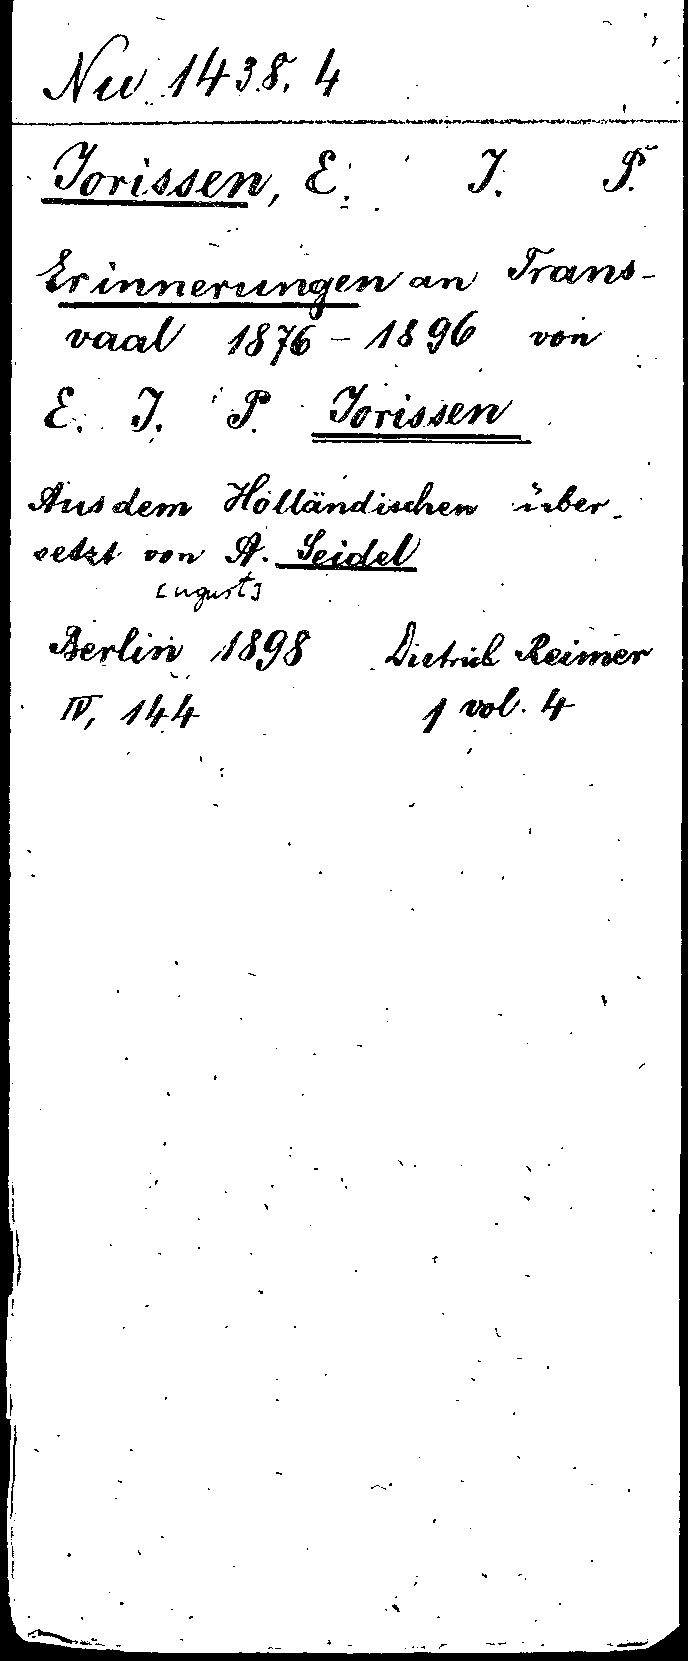 Nw 1438.4
Jorissen, E. J. P.
Erinnerungen an Trans-
vaal 1876-1896 von
E. J. P. Jorissen
Aus dem Holländischen über-
setzt von A. Seidel
[ugust]
Berlin 1898 Dietrich Reimer
IV, 144 1 vol. 4